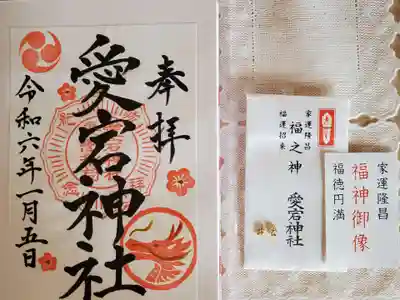 奉拝
愛宕神社
令和六年一月五日
家運隆昌
福運招来
福之神
愛宕神社
家運隆昌
福神御像
福徳円満